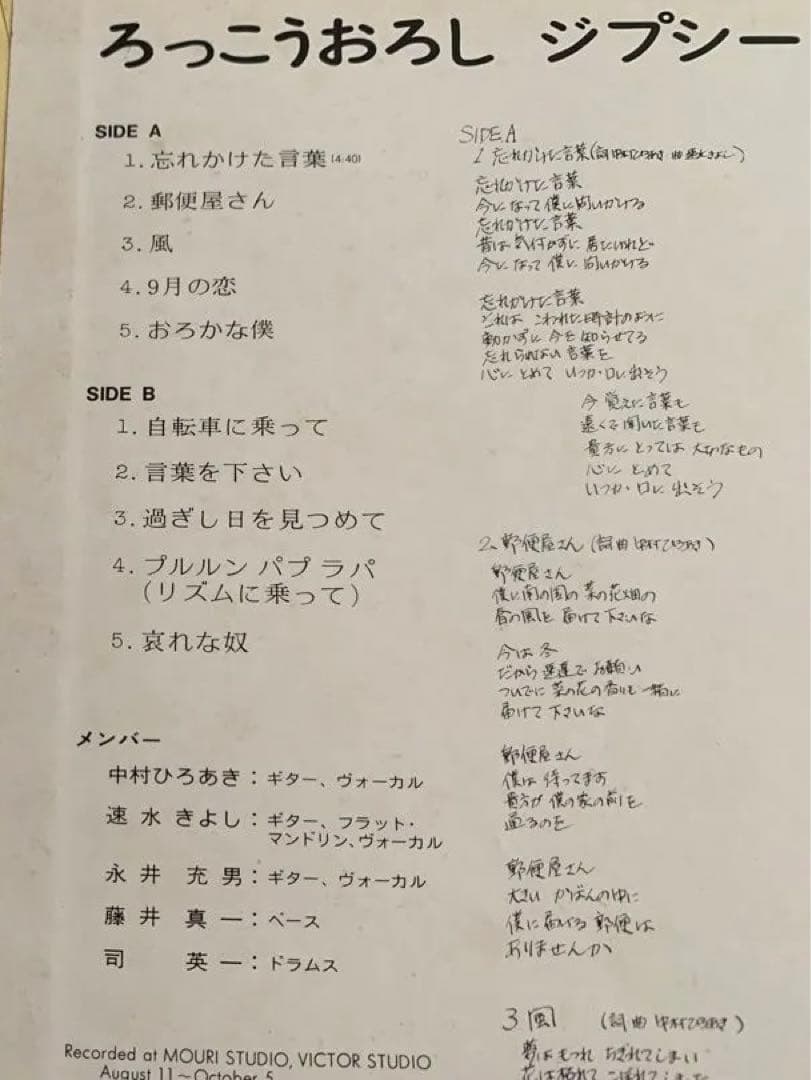 ろっこうおろし ジプシー
SIDE A
1. 忘れかけた言葉(4:40)
2. 郵便屋さん
3. 風
4. 9月の恋
5. おろかな僕
SIDE B
1. 自転車に乗って
2. 言葉を下さい
3. 過ぎし日を見つめて
4. プルルン パプ ラパ
(リズムに乗って)
5. 哀れな奴
メンバー
中村ひろあき：ギター、ヴォーカル
速水きよし：ギター、フラット・
マンドリン、ヴォーカル
永井 充男：ギター、ヴォーカル
藤井 真一：ベース
司 英一：ドラムス
Recorded at MOURI STUDIO, VICTOR STUDIO
August 11〜October 5
SIDE A
1. 忘れかけた言葉(詞 中村ひろあき 曲 速水きよし)
忘れかけた言葉
今になって僕に問いかける
忘れかけた言葉
昔は気付かずに居たけれど
今になって僕に問いかける
忘れかけた言葉
それは こわれた時計のように
動かずに今を知らせてる
忘れられない言葉を
心にとめて いつか口に出そう
今 覚えた言葉も
遠くで聞いた言葉も
貴方にとっては 大切なもの
心に とめて
いつか 口に 出そう
2. 郵便屋さん (詞曲 中村ひろあき)
郵便屋さん
僕に南の国の 菜の花畑の
春の風を 届けて下さいな
今は冬
だから 速達で お願い
ついでに菜の花の香りも一緒に
届けて下さいな
郵便屋さん
僕は 待ってます
貴方が 僕の家の前を
通るのを
郵便屋さん
大きい かばんの中に
僕に届ける 郵便は
ありませんか
3 風 (詞曲 中村ひろあき)
夢はもつれ ちぎれてしまい
花は枯れて こぼれてしまった